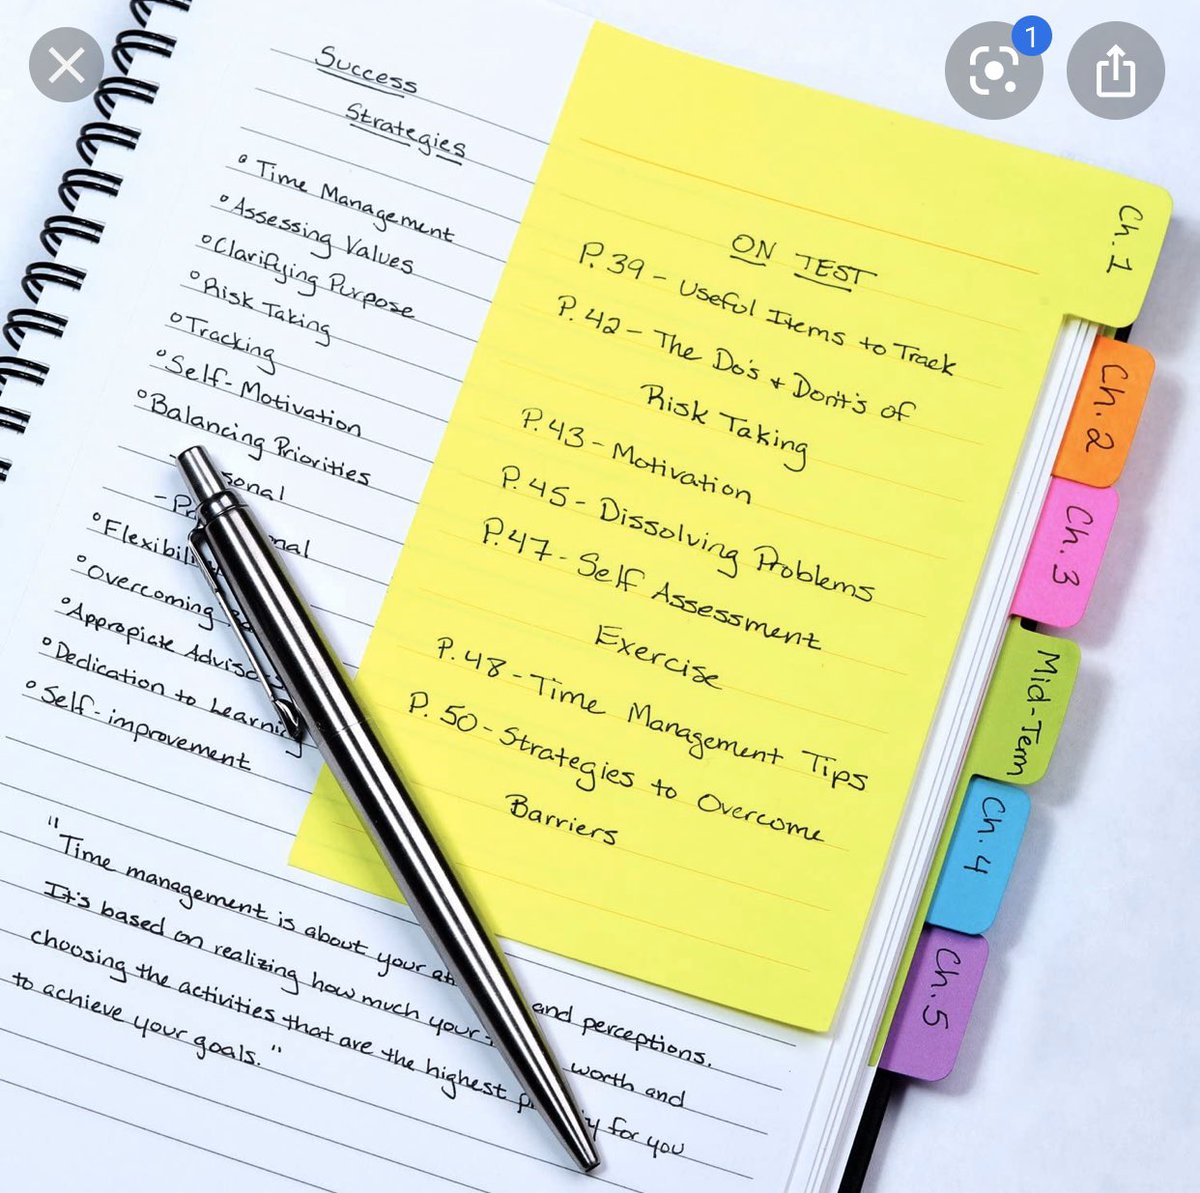 Success
Strategies
° Time Management
° Assessing Values
° Clarifying Purpose
° Risk Taking
° Tracking
° Self-Motivation
° Balancing Priorities
° Overcoming
° Appropiate
° Dedication to Learning
° Self-improvement
"Time management is about your and perceptions.
It's based on realizing how much your worth and
choosing the activities that are the highest for you
to achieve your goals."
ON TEST
P. 39 - Useful Items to Track
P. 42 - The Do's + Dont's of
Risk Taking
P. 43 - Motivation
P. 45 - Dissolving Problems
P. 47 - Self Assessment
Exercise
P. 48 - Time Management Tips
P. 50 - Strategies to Overcome
Barriers
Ch. 1
Ch. 2
Ch. 3
Mid-Term
Ch. 4
Ch. 5
1